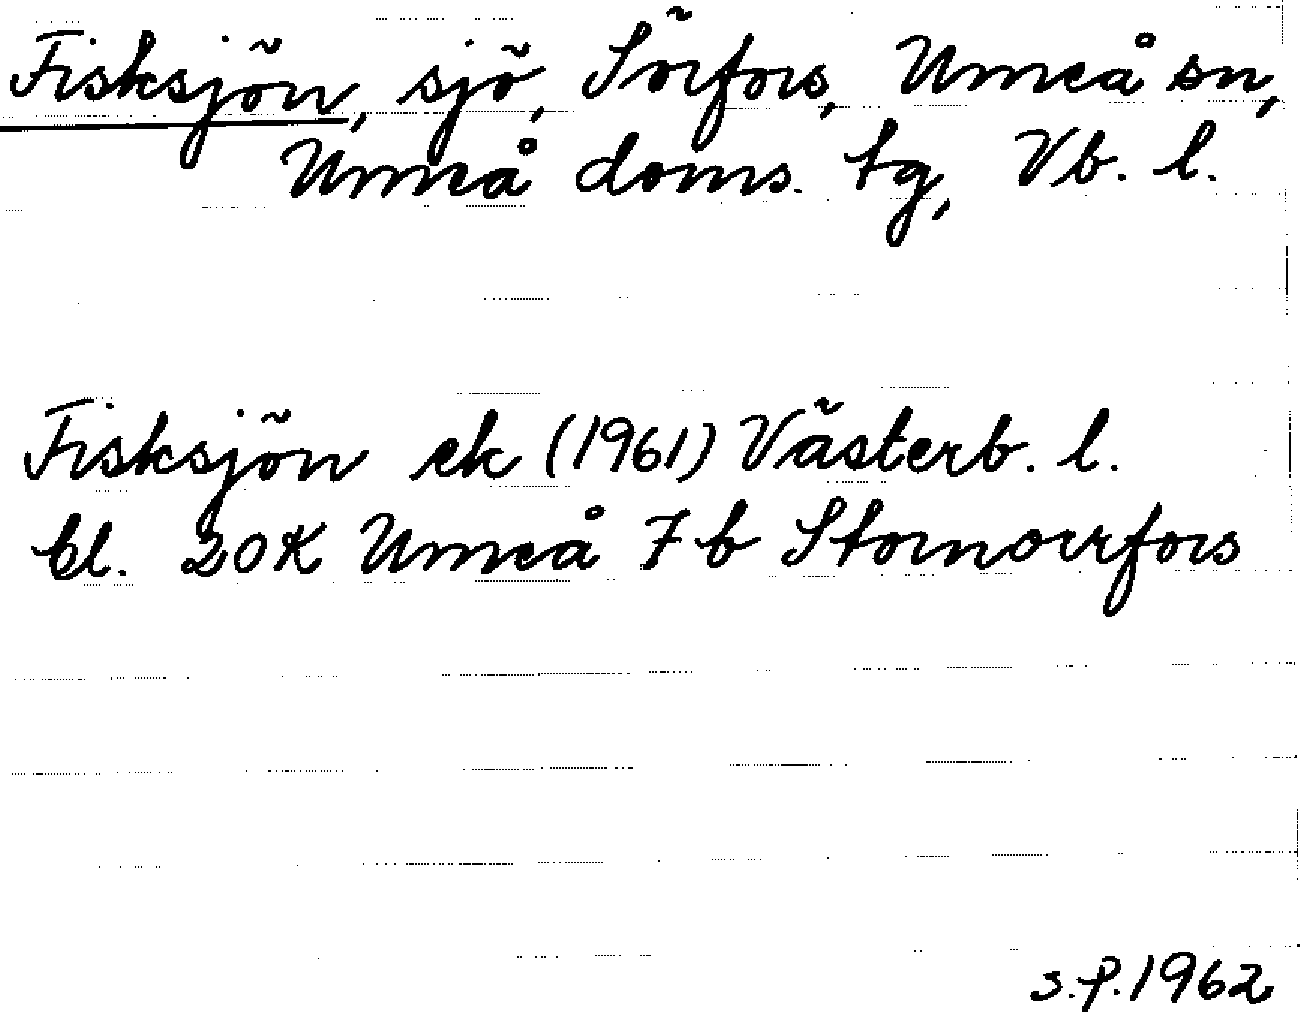 Fisksjön, sjö, Sörfors, Umeå sn,
Umeå doms. tg, Vb. l.
Fisksjön ek (1961) Västerb. l.
bl. 20K Umeå 7 b Stornorrfors
s.f. 1962